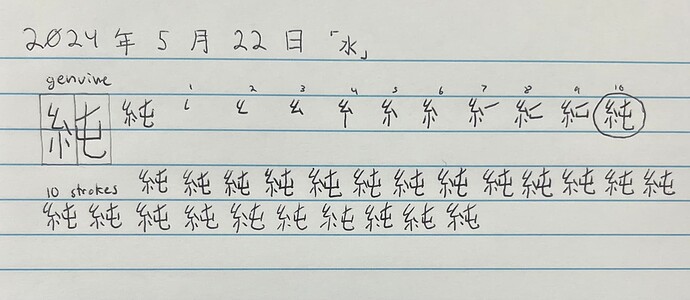 2024 年 5 月 22 日 「水」
genuine 1 2 3 4 5 6 7 8 9 10
純 純 糸 純
10 strokes 純 純 純 純 純 純 純 純 純 純 純 純 純
純 純 純 純 純 純 純 純 純 純